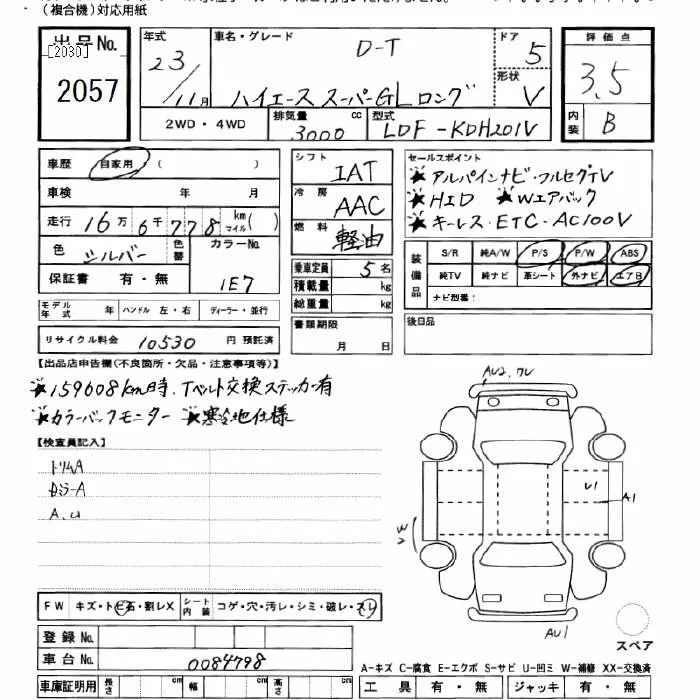 （複合機）対応用紙
出品No. [2030] 2057
年式 23/11月
車名・グレード D-T
ハイエース スーパーGL ロング
ドア 5
形状 V
評価点 3.5
内装 B
2WD・4WD 排気量 3000 cc 型式 LDF-KDH201V
車歴 自家用・( )
車検 年 月
走行 16万6千778 km マイル( )
色 シルバー 色替 カラーNo. 1E7
保証書 有・無
モデル年式 年 ハンドル 左・右 ディーラー・並行
リサイクル料金 10530 円 預託済
シフト IAT
冷房 AAC
燃料 軽油
乗車定員 5名
積載量 kg
総重量 kg
書類期限 月 日
セールスポイント
★アルパインナビ・フルセグTV
★HID ★Wエアバック
★キーレス・ETC・AC100V
装備品 S/R 純A/W P/S P/W ABS
純TV 純ナビ 革シート 外ナビ エアB
ナビ型番：
後日品
【出品店申告欄(不良箇所・欠品・注意事項等)】
★159608km時、Tベルト交換ステッカー有
★カラーバックモニター ★寒冷地仕様
【検査員記入】
トリムA
Dミラー A
A、U
AU2、U
U1
A1
W
AU1
スペア
FW キズ・トビ石・割レX シート内装 コゲ・穴・汚レ・シミ・破レ・スレ
登録No.
車台No. 0084798
A-キズ C-腐食 E-エクボ S-サビ U-凹ミ W-補修 XX-交換済
車庫証明用 長さ cm 幅 cm 高さ cm
工具 有・無 ジャッキ 有・無